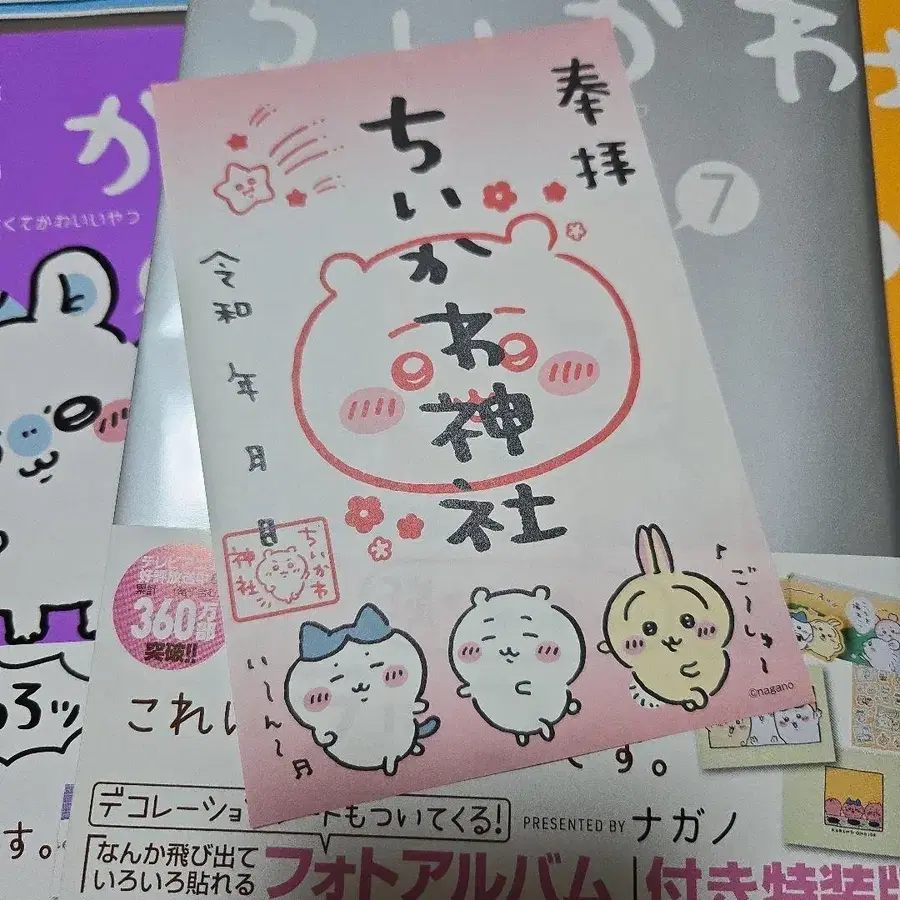 ちいかわ
7
か
くてかわいいやつ
奉拝
ちいかわ神社
令和 年 月 日
ちいかわ
神社
♪ごーしゅー
いーんー月
©nagano
360万部
突破!!
これ
ろッ
す。
す。
もついてくる!
デコレーショ
PRESENTED BY ナガノ
なんか飛び出て
いろいろ貼れる
フォトアルバム
付き特装版